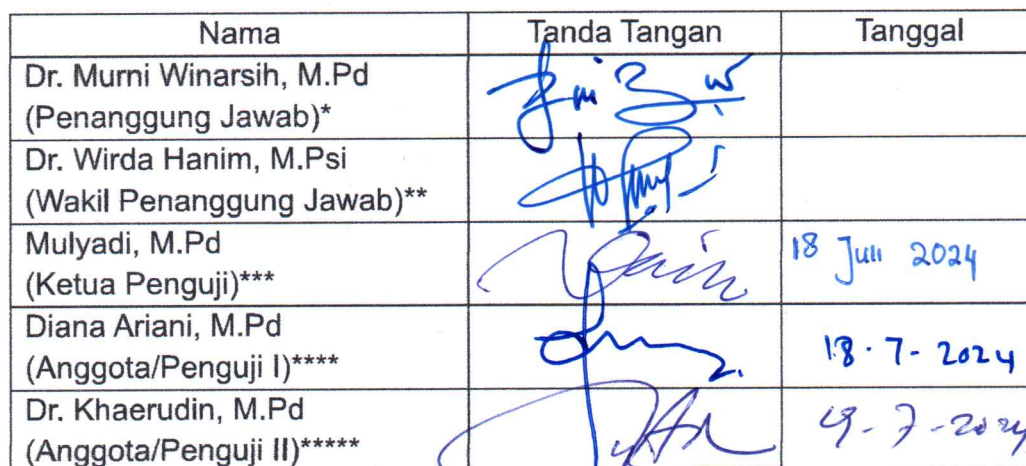 Nama Tanda Tangan Tanggal
Dr. Murni Winarsih, M.Pd
(Penanggung Jawab)*
Dr. Wirda Hanim, M.Psi
(Wakil Penanggung Jawab)**
Mulyadi, M.Pd
(Ketua Penguji)*** 18 Juli 2024
Diana Ariani, M.Pd
(Anggota/Penguji I)**** 18 - 7 - 2024
Dr. Khaerudin, M.Pd
(Anggota/Penguji II)***** - 7 - 2024